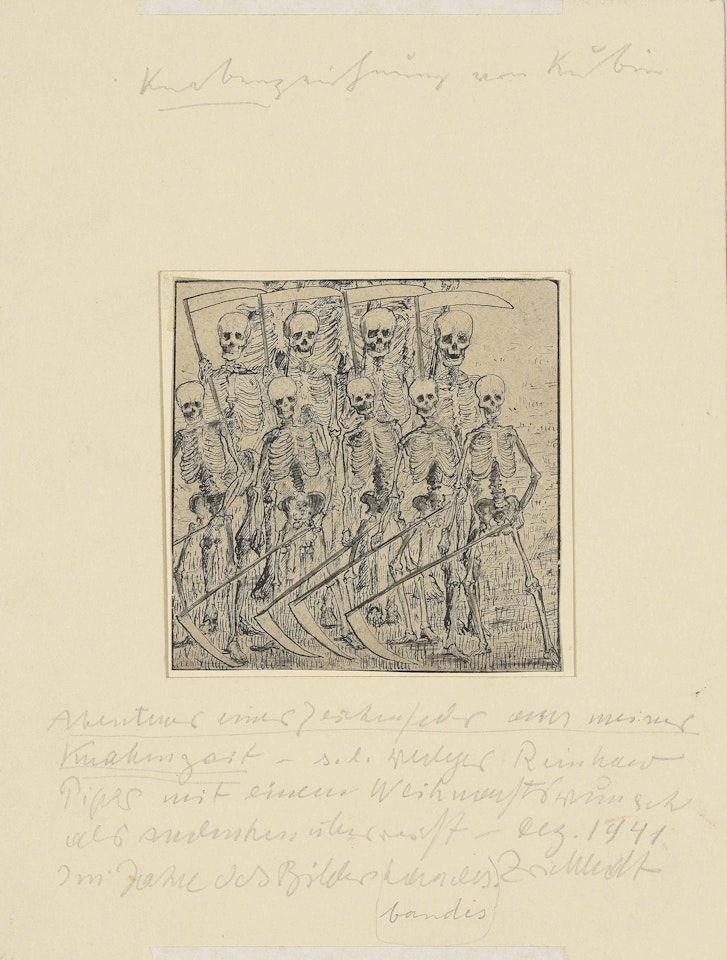 Knabenzeichnung von Kubin
Abenteuer einer Zeichenfeder aus meiner
Knabenzeit – s. l. Verleger Reinhard
Piper mit einem Weihnachtswunsch
als Andenken überreicht – Dez. 1941
Im Jahre des Bilder
bandes